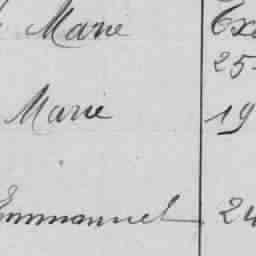 Marie
25
Marie 19
Emmanuel 24